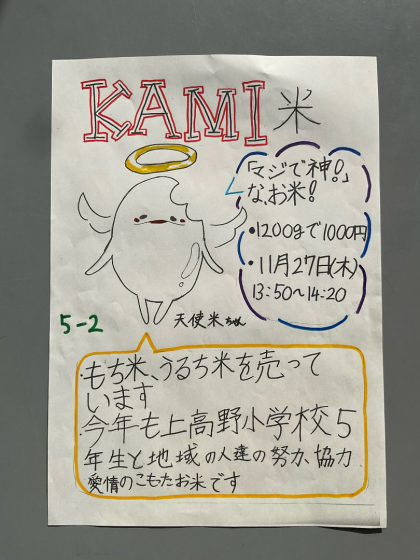 KAMI米
「マジで神!」
な、お米!
・1200gで1000円
・11月27日(木)
13:50〜14:20
5-2
天使米ちゃん
・もち米、うるち米を売って
います
今年も上高野小学校5
年生と地域の人達の努力、協力
愛情のこもたお米です